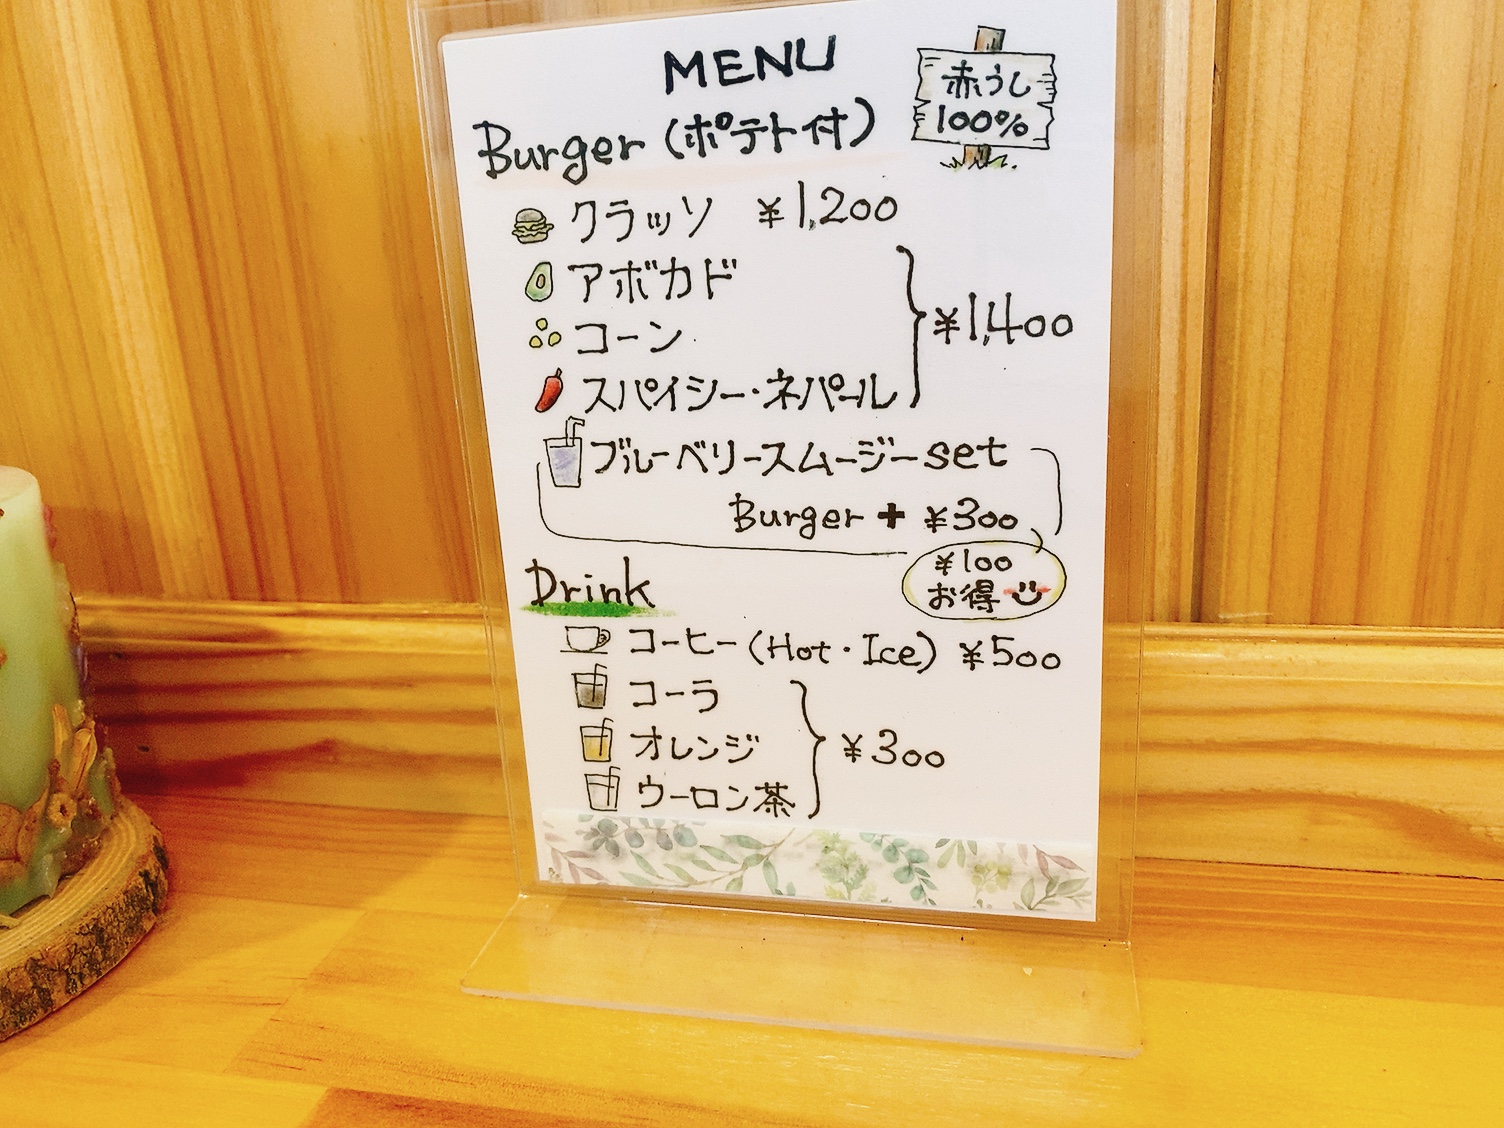 MENU
赤うし
100%
Burger (ポテト付)
クラッソ ¥1,200
アボカド
コーン
スパイシー・ネパール
¥1,400
ブルーベリースムージーset
Burger + ¥300
¥100
お得
Drink
コーヒー (Hot・Ice) ¥500
コーラ
オレンジ
ウーロン茶
¥300